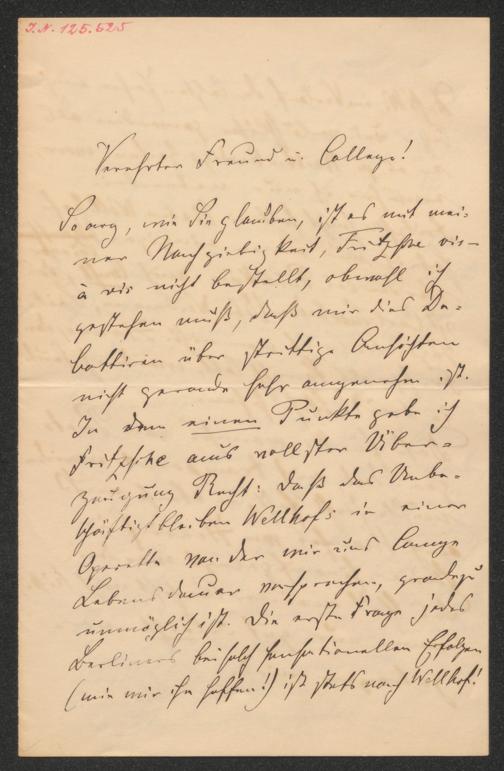 I.N. 125.625
Verehrter Freund u. College!
So arg, wie Sie glauben, ist es mit mei-
ner Nachgiebigkeit, Fritzsche vis-
à vis nicht bestellt, obwohl ich
gestehen muß, daß mir dies De-
battiren über strittige Ansichten
nicht gerade sehr angenehm ist.
In dem einen Punkte gebe ich
Fritzsche aus vollster Über-
zeugung Recht: daß das Unbe-
schäftigtbleiben Wellhof's in einer
Operette von der wir uns lange
Lebensdauer versprechen, gradezu
unmöglich ist. Die erste Frage jedes
Berliners bei solch sensationellen Erfolgen
(wie wir ihn hoffen!) ist stets nach Wellhof!